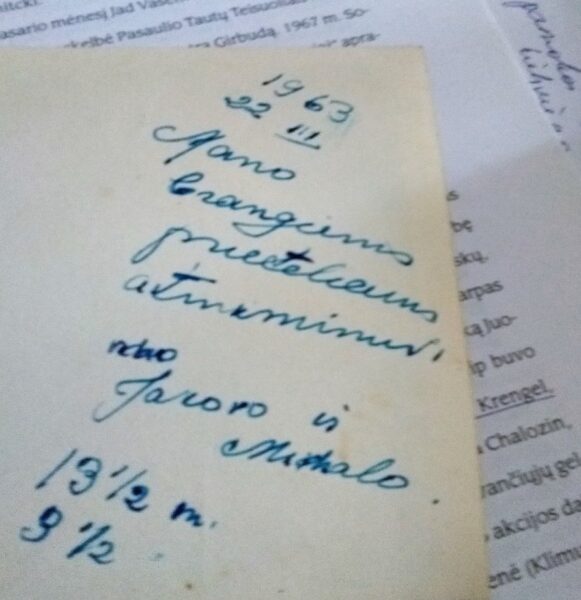 sario mėnesį Jad Vašem
kelbė Pasaulio Tautų Teisuoliais
Girbudą. 1967 m. So-
apra-
1963
22 III
Mano
brangiems
prieteliams
atminimui,
nuo
Jazoro ir
Michalo.
13 1/2 m.
9 1/2
bę
skų,
arpas
ką Juo-
ip buvo
Krengel,
Chalozin,
rančiųjų gel
akcijos da
enė (Klimu